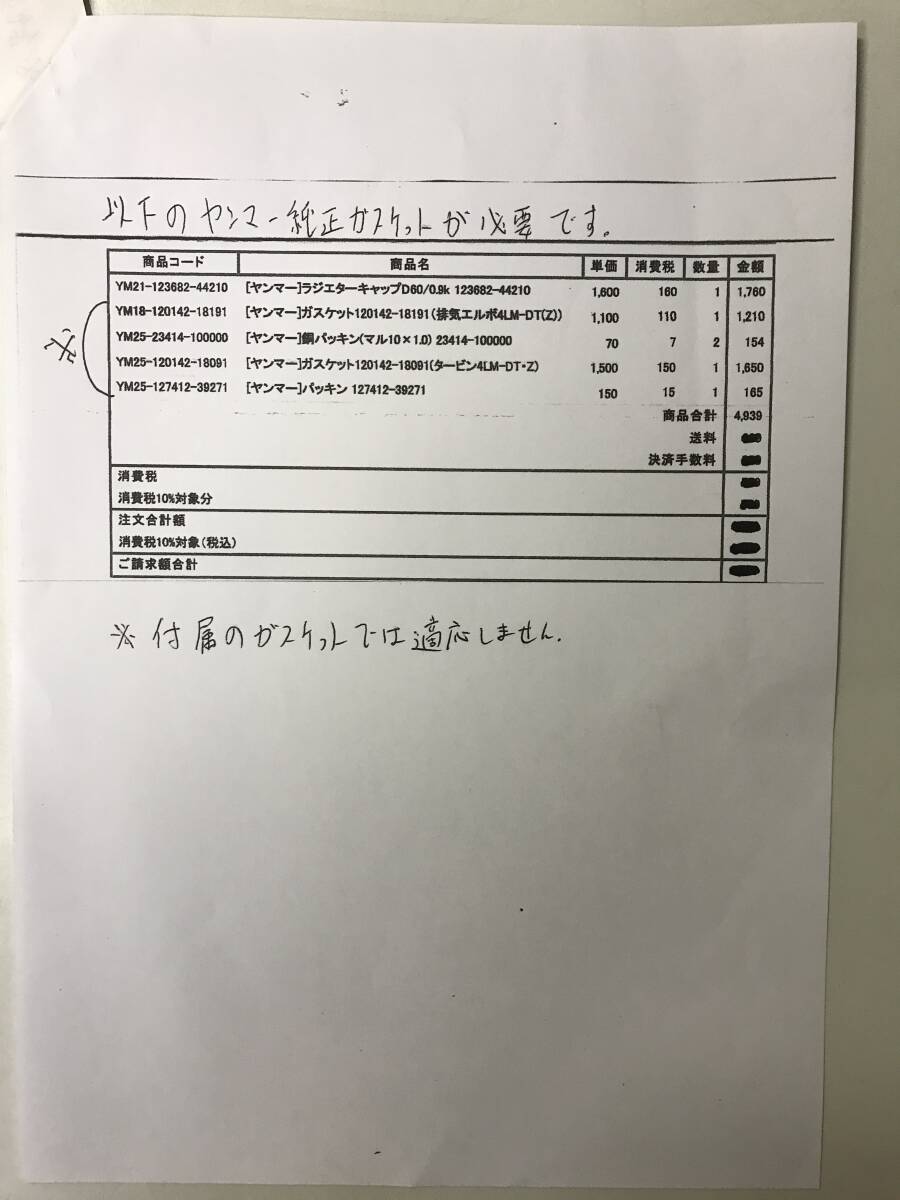 以下のヤンマー純正ガスケットが必要です。
商品コード 商品名 単価 消費税 数量 金額
YM21-123682-44210 [ヤンマー]ラジエターキャップD60/0.9k 123682-44210 1,600 160 1 1,760
YM18-120142-18191 [ヤンマー]ガスケット120142-18191(排気エルボ4LM-DT(Z)) 1,100 110 1 1,210
※ YM25-23414-100000 [ヤンマー]銅パッキン(マル10×1.0) 23414-100000 70 7 2 154
YM25-120142-18091 [ヤンマー]ガスケット120142-18091(タービン4LM-DT・Z) 1,500 150 1 1,650
YM25-127412-39271 [ヤンマー]パッキン 127412-39271 150 15 1 165
商品合計 4,939
送料
決済手数料
消費税
消費税10%対象分
注文合計額
消費税10%対象(税込)
ご請求額合計
※ 付属のガスケットでは適応しません.